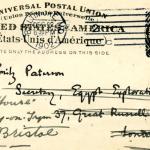 UNIVERSAL POSTAL UNION
Union Postale Universelle
UNITED STATES OF AMERICA
États-Unis d'Amérique
1902
WRITE ONLY THE ADDRESS ON THIS SIDE
Emily Paterson
Secretary Egypt Exploration
House
37 Great Russell
Bristol
London